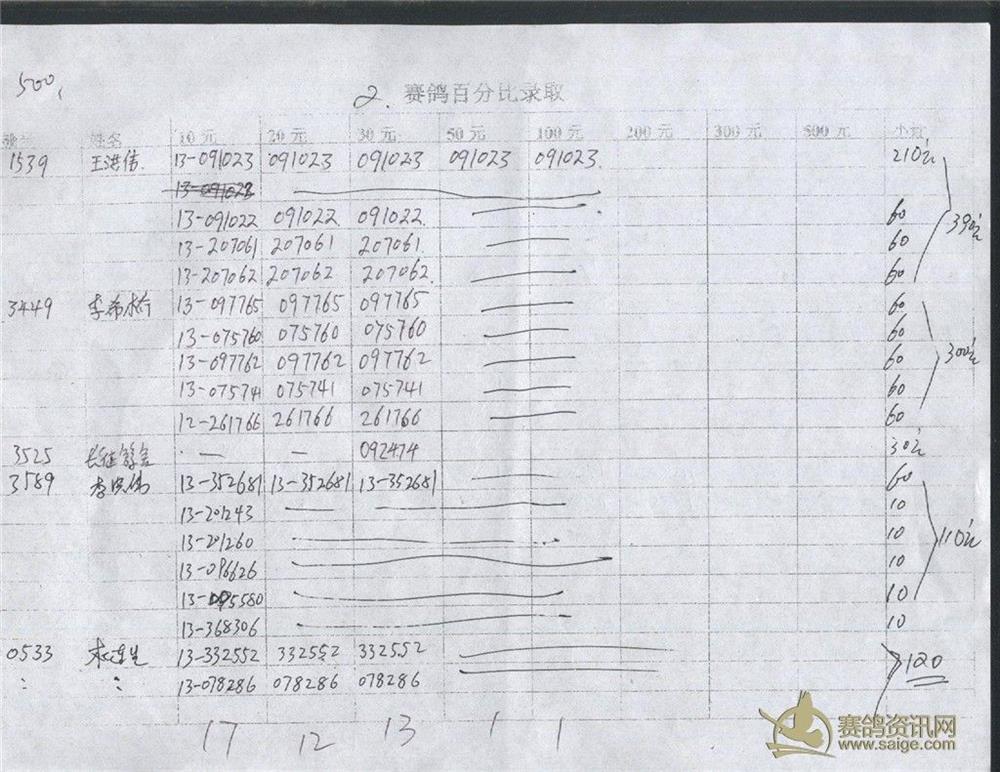 500,
2. 赛鸽百分比录取
姓名 10元 20元 30元 50元 100元 200元 300元 500元 小计
1539 王洪伟 13-091023 091023 091023 091023 091023. 210元
13-091022 091022 091022. 60
13-207061 207061 207061. 60 390元
13-207062 207062 207062. 60
3449 李希 13-097765 097765 097765 60
13-075760 075760 075760 60
13-097762 097762 097762 60 300元
13-075741 075741 075741 60
12-261766 261766 261766 60
3525 — — 092474 30元
3589 13-352681 13-352681 13-352681 60
13-201243 10
13-201260 10 110元
13-096626 10
13-095580 10
13-368306 10
0533 13-332552 332552 332552 120
: : 13-078286 078286 078286
17 12 13 1 1
赛鸽资讯网
www.saige.com